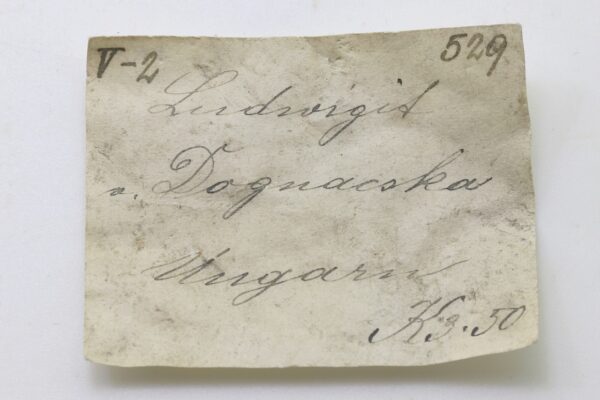 V-2 529
Ludwigit
v. Dognacska
Ungarn
K3.50